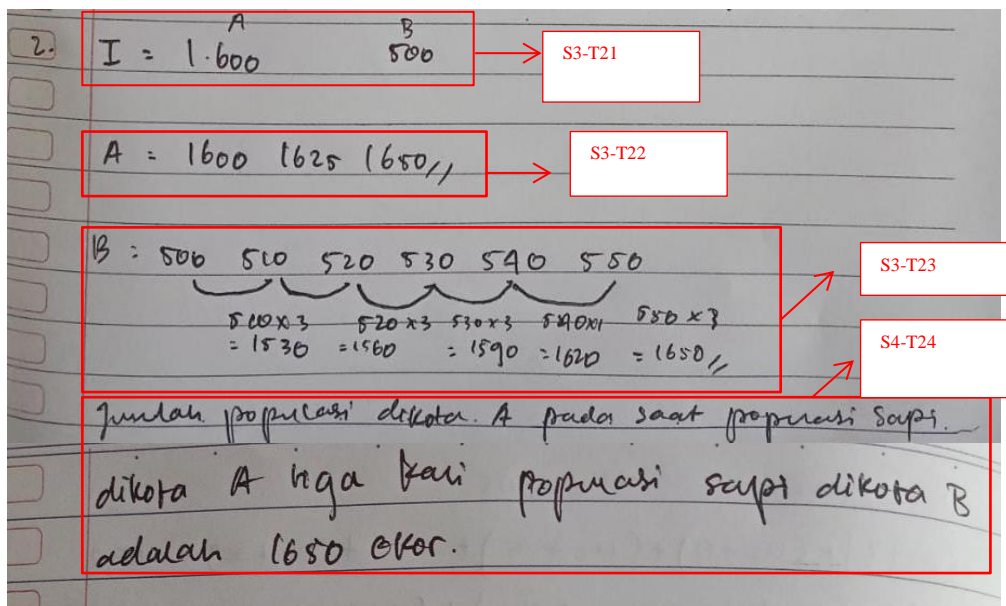 A B
2. I = 1.600 500
S3-T21
A = 1600 1625 1650//
S3-T22
B : 500 510 520 530 540 550
S3-T23
510x3 520x3 530x3 540x1 550x3
= 1530 =1560 = 1590 =1620 = 1650//
S4-T24
Jumlah populasi dikota. A pada saat popuasi sapi.
dikota A tiga kali popuasi sapi dikota B
adalah 1650 ekor.